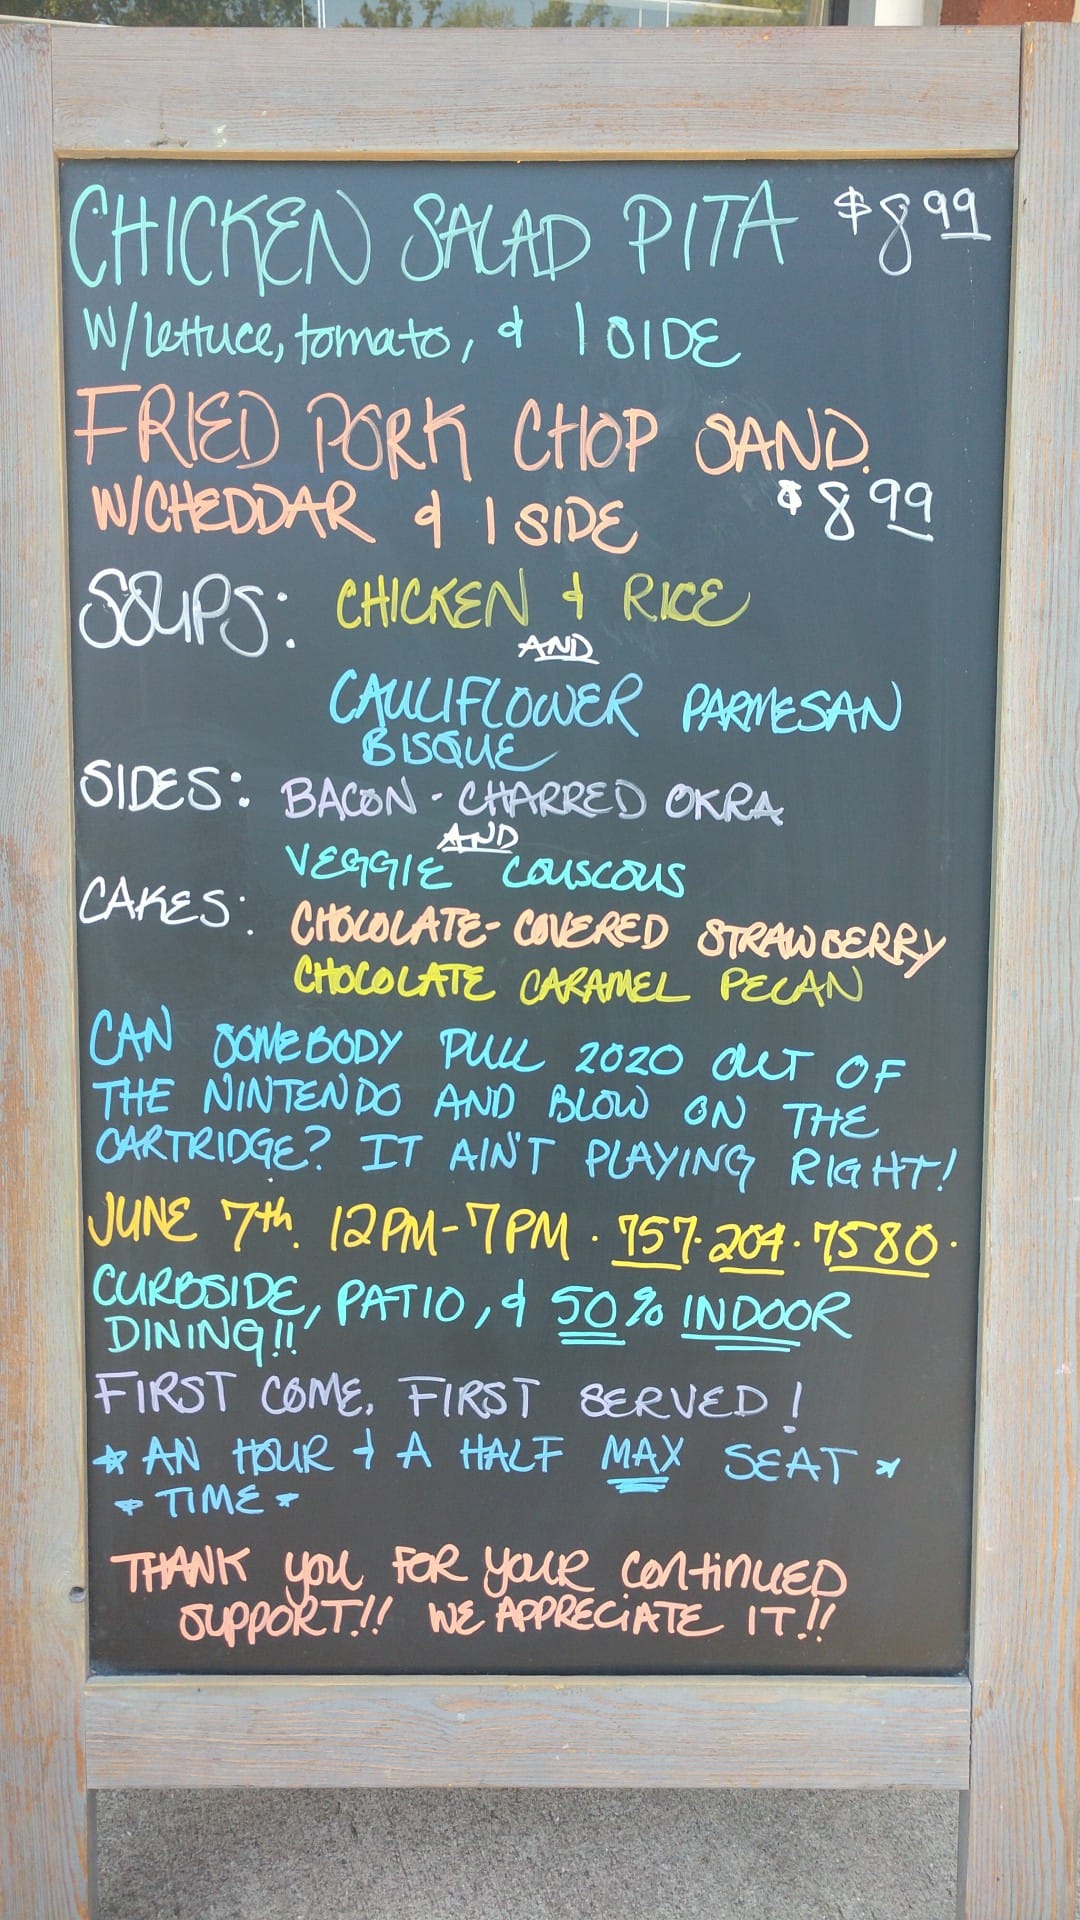 CHICKEN SALAD PITA $8 99
W/lettuce, tomato, & 1 SIDE
FRIED PORK CHOP SAND.
W/CHEDDAR & 1 SIDE $8 99
SOUPS: CHICKEN & RICE
AND
CAULIFLOWER PARMESAN
BISQUE
SIDES: BACON-CHARRED OKRA
AND
VEGGIE COUSCOUS
CAKES: CHOCOLATE-COVERED STRAWBERRY
CHOCOLATE CARAMEL PECAN
CAN SOMEBODY PULL 2020 OUT OF
THE NINTENDO AND BLOW ON THE
CARTRIDGE? IT AIN'T PLAYING RIGHT!
JUNE 7th. 12PM-7PM · 757·204·7580·
CURBSIDE, PATIO, & 50% INDOOR
DINING!!
FIRST COME, FIRST SERVED!
* AN HOUR & A HALF MAX SEAT *
* TIME *
THANK you FOR your continued
SUPPORT!! WE APPRECIATE IT!!